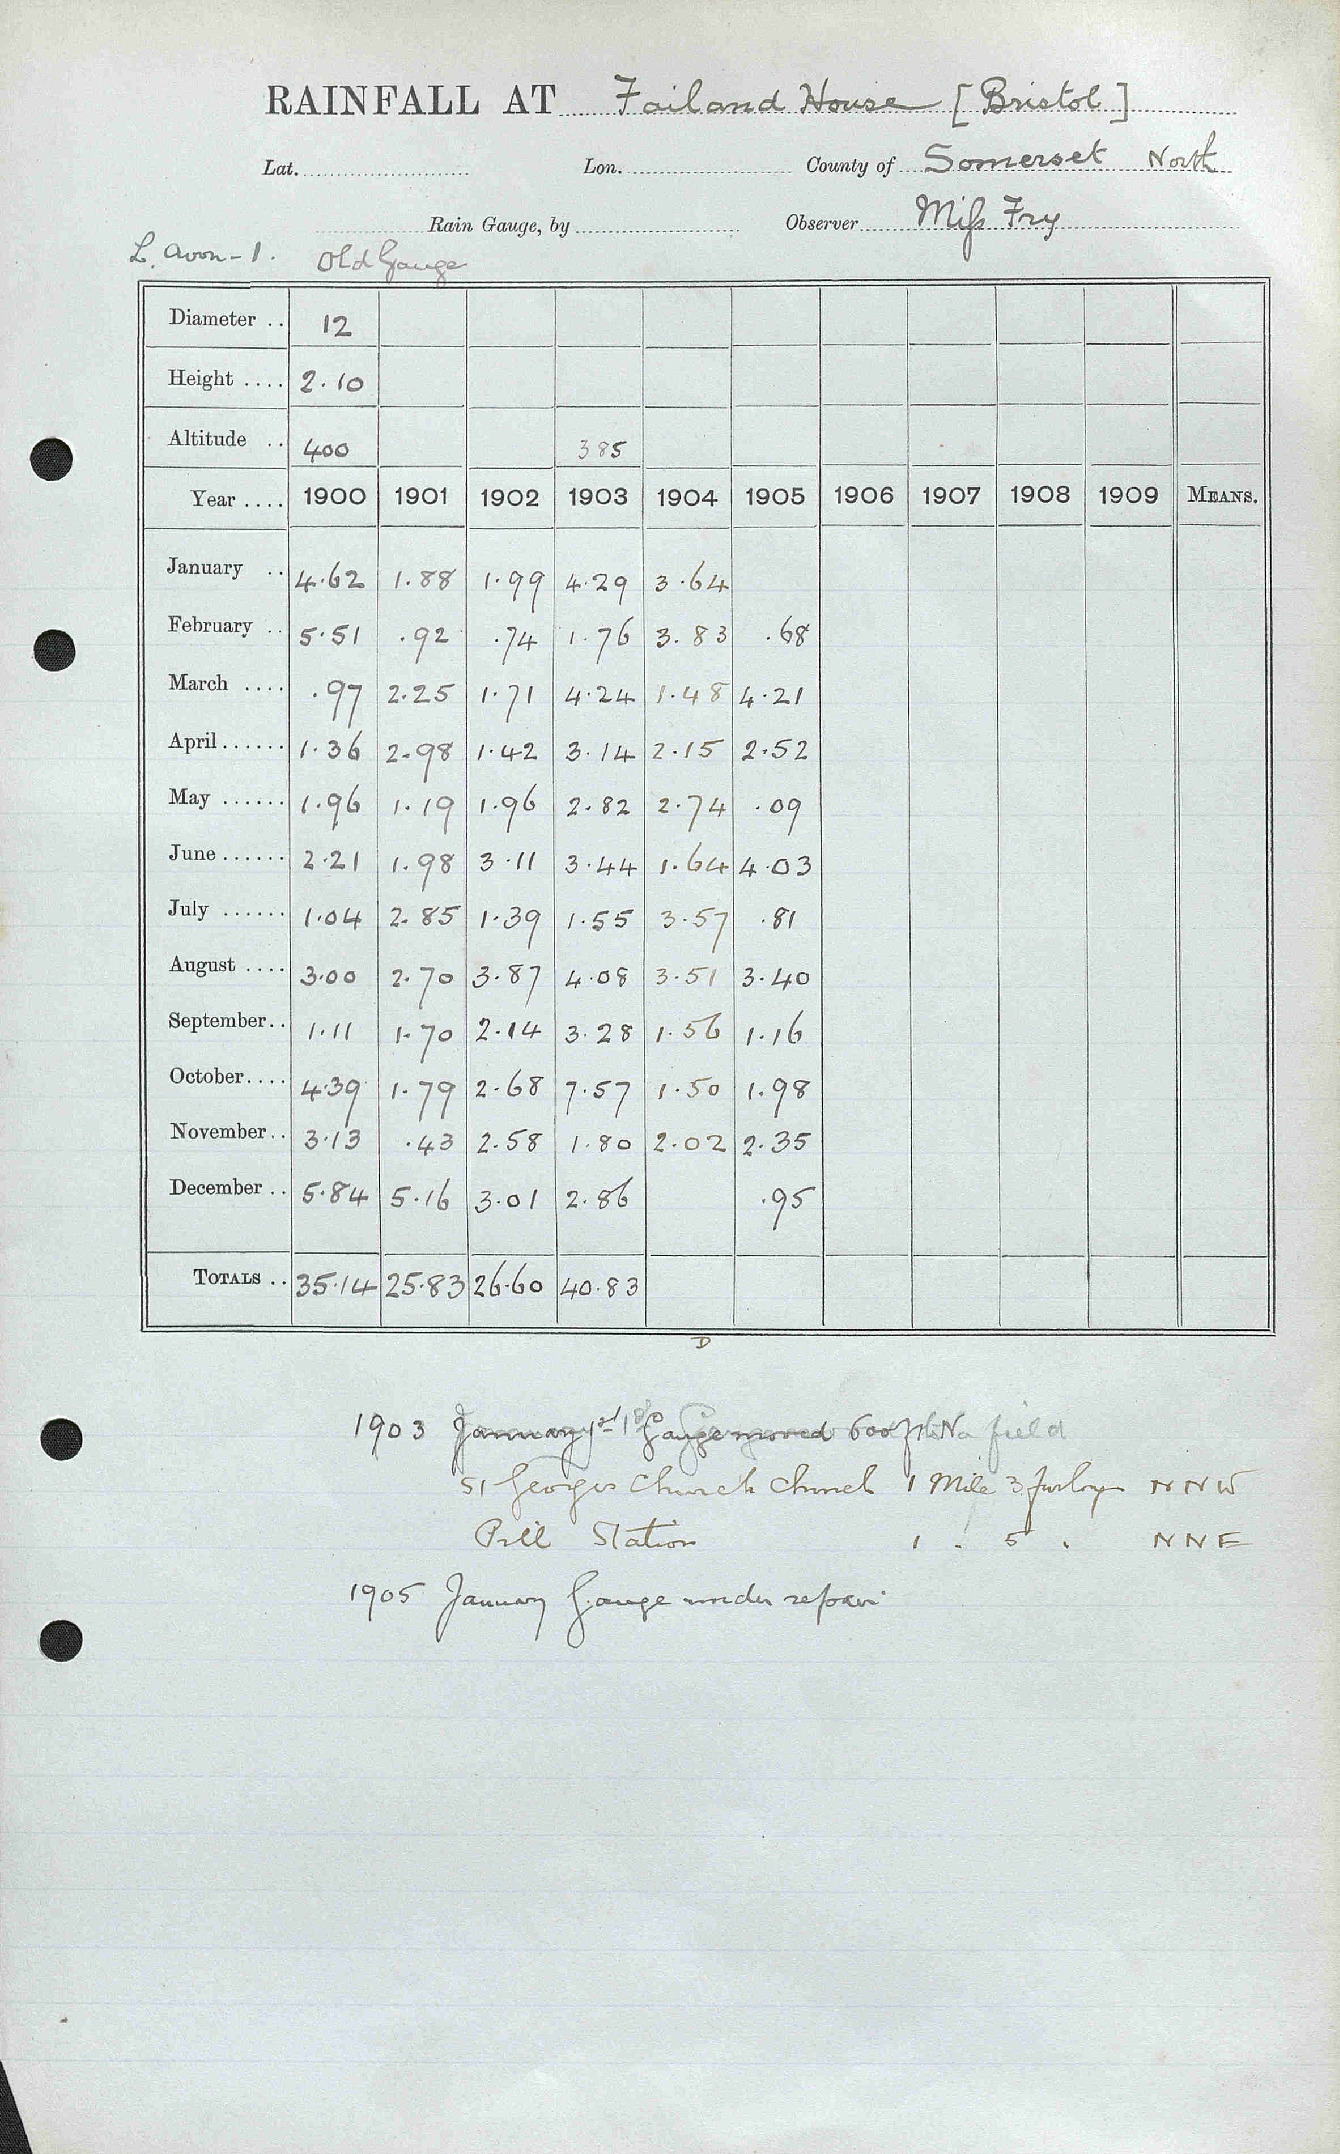 RAINFALL AT Failand House [Bristol]
Lat. Lon. County of Somerset North
Rain Gauge, by Observer Miss Fry
L. Avon - 1. Old Gauge
Diameter .. 12
Height .... 2.10
Altitude .. 400 385
Year .... 1900 1901 1902 1903 1904 1905 1906 1907 1908 1909 MEANS.
January .. 4.62 1.88 1.99 4.29 3.64
February .. 5.51 .92 .74 1.76 3.83 .68
March .... .97 2.25 1.71 4.24 1.48 4.21
April...... 1.36 2.98 1.42 3.14 2.15 2.52
May ...... 1.96 1.19 1.96 2.82 2.74 .09
June ...... 2.21 1.98 3.11 3.44 1.64 4.03
July ...... 1.04 2.85 1.39 1.55 3.57 .81
August .... 3.00 2.70 3.87 4.08 3.51 3.40
September.. 1.11 1.70 2.14 3.28 1.56 1.16
October.... 4.39 1.79 2.68 7.57 1.50 1.98
November.. 3.13 .43 2.58 1.80 2.02 2.35
December .. 5.84 5.16 3.01 2.86 .95
TOTALS .. 35.14 25.83 26.60 40.83
D
1903 January 1st Gauge moved 600 ft to N field
St Georges Church Church 1 Mile 3 furlongs NNW
Pill Station 1 . 5 . NNE
1905 January Gauge under repair